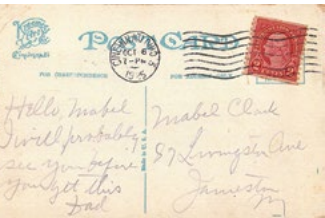 POST CARD
FOR CORRESPONDENCE
OCT 6
1925
Hello, Mabel
I will probably
see you before
you get this
Dad
MADE IN U.S.A.
Mabel Clark
57 Livingston Ave
Jamestown
NY
2
2